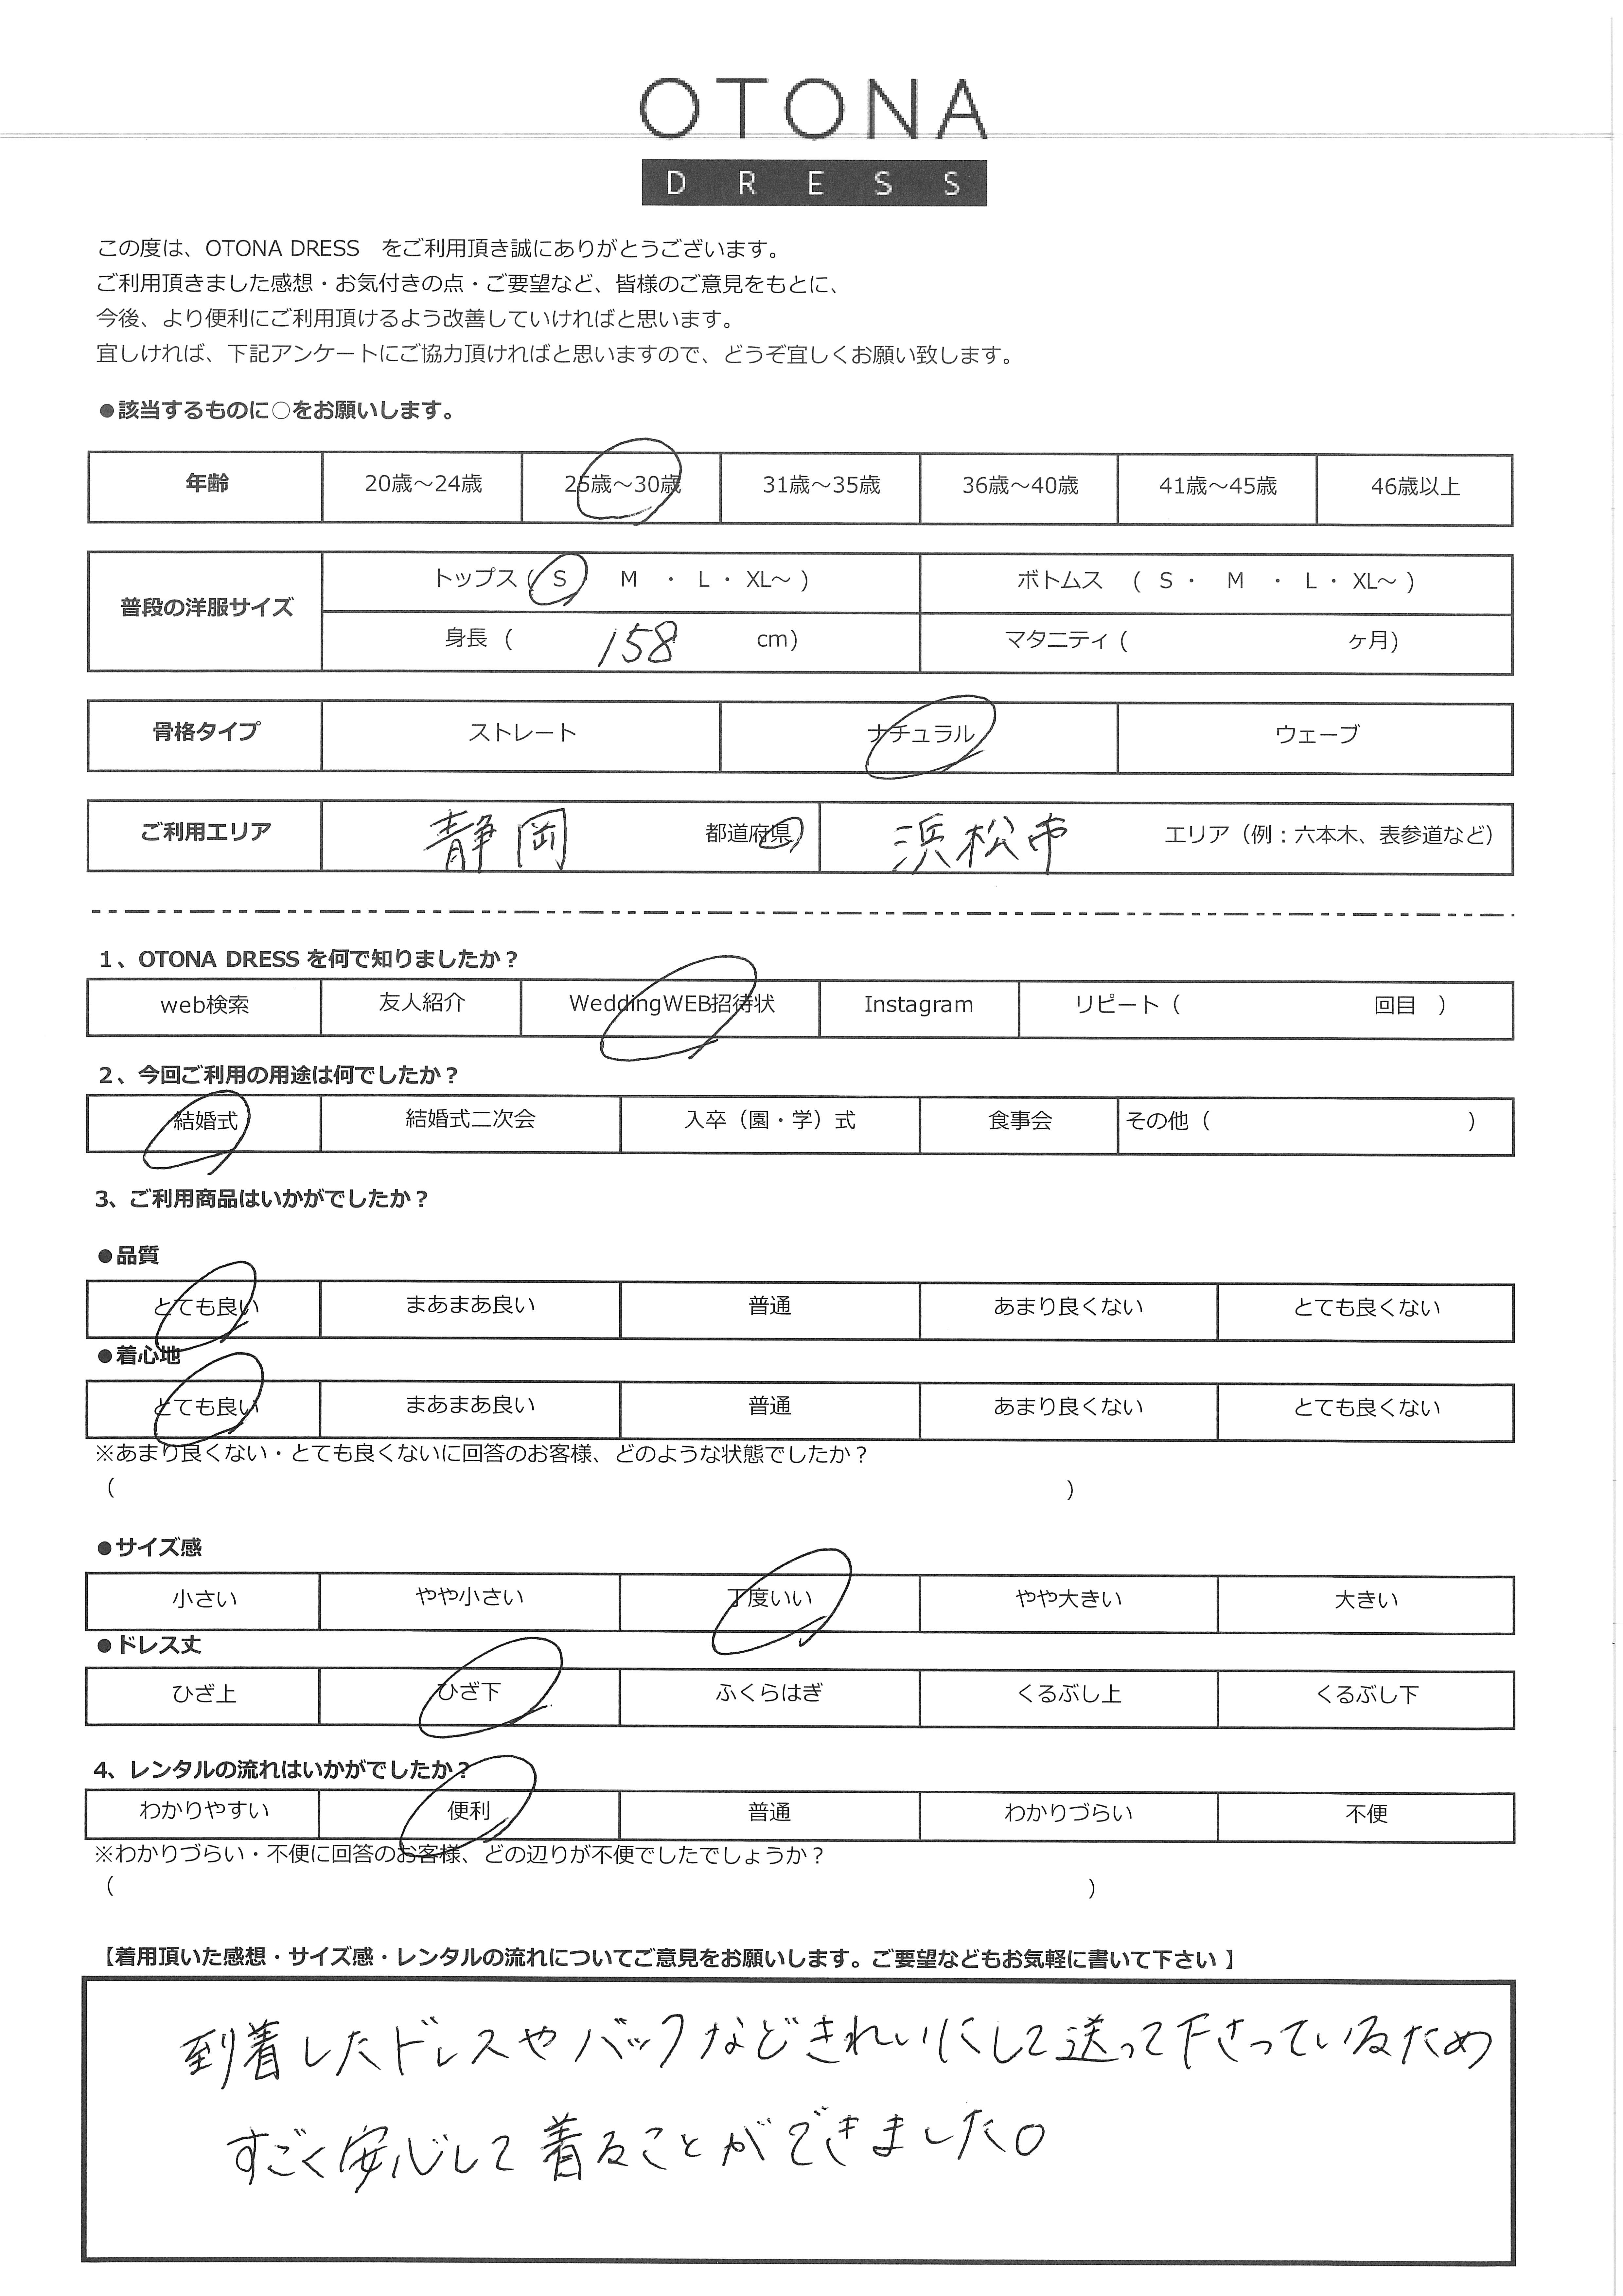 OTONA
DRESS
この度は、OTONA DRESS　をご利用頂き誠にありがとうございます。
ご利用頂きました感想・お気付きの点・ご要望など、皆様のご意見をもとに、
今後、より便利にご利用頂けるよう改善していければと思います。
宜しければ、下記アンケートにご協力頂ければと思いますので、どうぞ宜しくお願い致します。
●該当するものに○をお願いします。
年齢 20歳～24歳 25歳～30歳 31歳～35歳 36歳～40歳 41歳～45歳 46歳以上
普段の洋服サイズ トップス ( S ・ M ・ L ・ XL～ ) ボトムス ( S ・ M ・ L ・ XL～ )
身長 ( 158 cm) マタニティ ( ヶ月)
骨格タイプ ストレート ナチュラル ウェーブ
ご利用エリア 静岡 都道府県 浜松市 エリア（例：六本木、表参道など）
1、OTONA DRESS を何で知りましたか？
web検索 友人紹介 WeddingWEB招待状 Instagram リピート（ 回目 ）
2、今回ご利用の用途は何でしたか？
結婚式 結婚式二次会 入卒（園・学）式 食事会 その他（ ）
3、ご利用商品はいかがでしたか？
●品質
とても良い まあまあ良い 普通 あまり良くない とても良くない
●着心地
とても良い まあまあ良い 普通 あまり良くない とても良くない
※あまり良くない・とても良くないに回答のお客様、どのような状態でしたか？
（ ）
●サイズ感
小さい やや小さい 丁度いい やや大きい 大きい
●ドレス丈
ひざ上 ひざ下 ふくらはぎ くるぶし上 くるぶし下
4、レンタルの流れはいかがでしたか？
わかりやすい 便利 普通 わかりづらい 不便
※わかりづらい・不便に回答のお客様、どの辺りが不便でしたでしょうか？
（ ）
【着用頂いた感想・サイズ感・レンタルの流れについてご意見をお願いします。ご要望などもお気軽に書いて下さい 】
到着したドレスやバックなどきれいにして送って下さっているため
すごく安心して着ることができました。